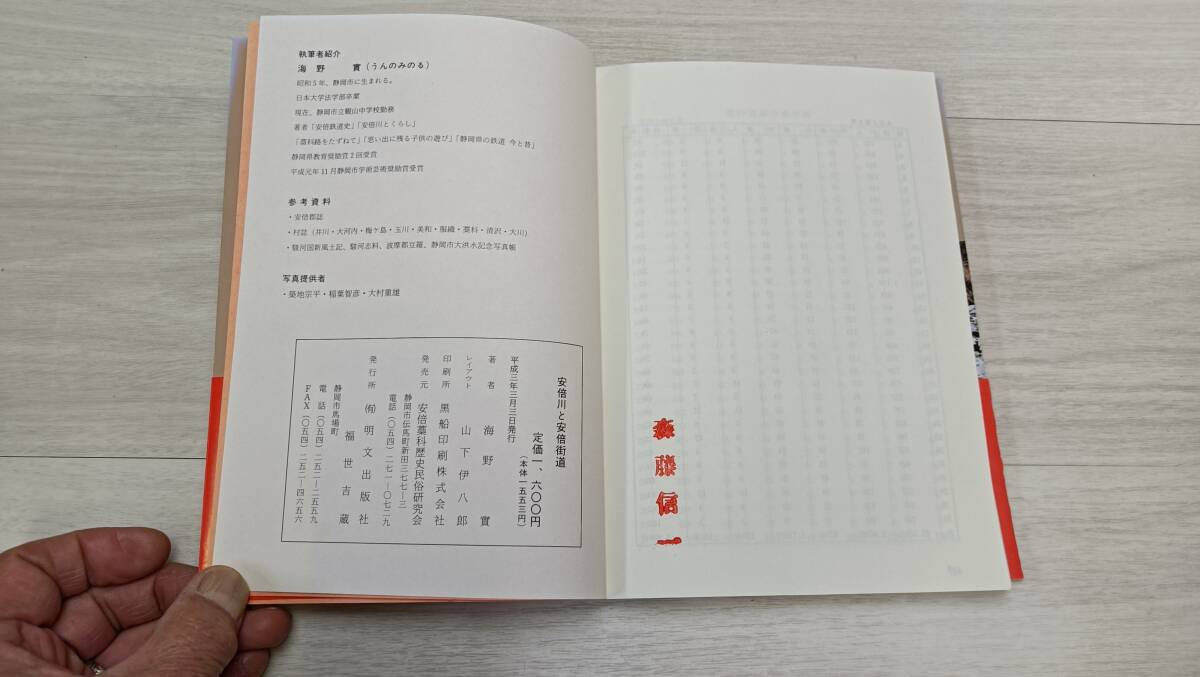 執筆者紹介
海野 實(うんのみのる)
昭和5年、静岡市に生まれる。
日本大学法学部卒業
現在、静岡市立観山中学校勤務
著者「安倍鉄道史」「安倍川とくらし」
「藁科路をたずねて」「思い出に残る子供の遊び」「静岡県の鉄道 今と昔」
静岡県教育奨励賞2回受賞
平成元年11月静岡市学術芸術奨励賞受賞
参考資料
・安倍郡誌
・村誌(井川・大河内・梅ケ島・玉川・美和・服織・藁科・清沢・大川)
・駿河国新風土記、駿河志料、波摩都豆羅、静岡市大洪水記念写真帳
写真提供者
・築地宗平・稲葉智彦・大村重雄
安倍川と安倍街道
定価一、六〇〇円
(本体一五五三円)
平成三年三月三日発行
著者 海野實
レイアウト 山下伊八郎
印刷所 黒船印刷株式会社
発売元 安倍藁科歴史民俗研究会
静岡市伝馬町新田三七七―三
電話(〇五四)二七一―〇七二九
発行所 ㈲明文出版社
福世吉蔵
静岡市馬場町
電話(〇五四)二五二―二五五九
FAX(〇五四)二五二―四六五六
藤信